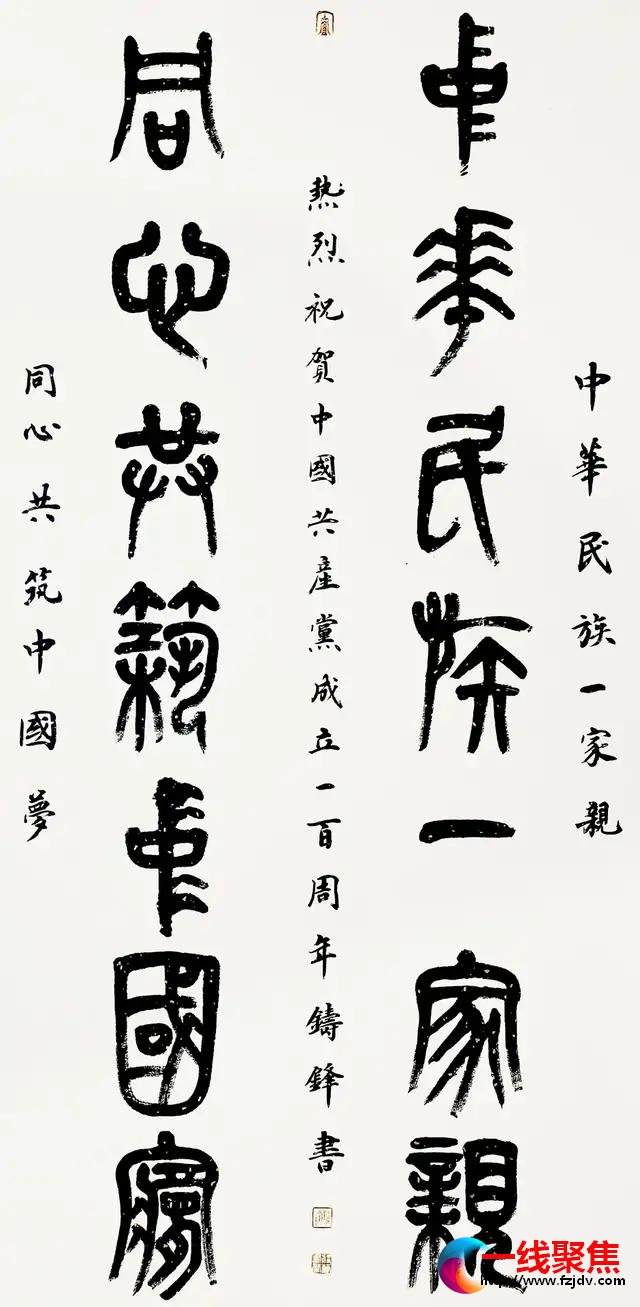 中華民族一家親
中華民族一家親
熱烈祝賀中國共產黨成立一百周年鑄鋒書
同心共筑中國夢
同心共筑中國夢
一线聚焦
http://www.fzjdv.com